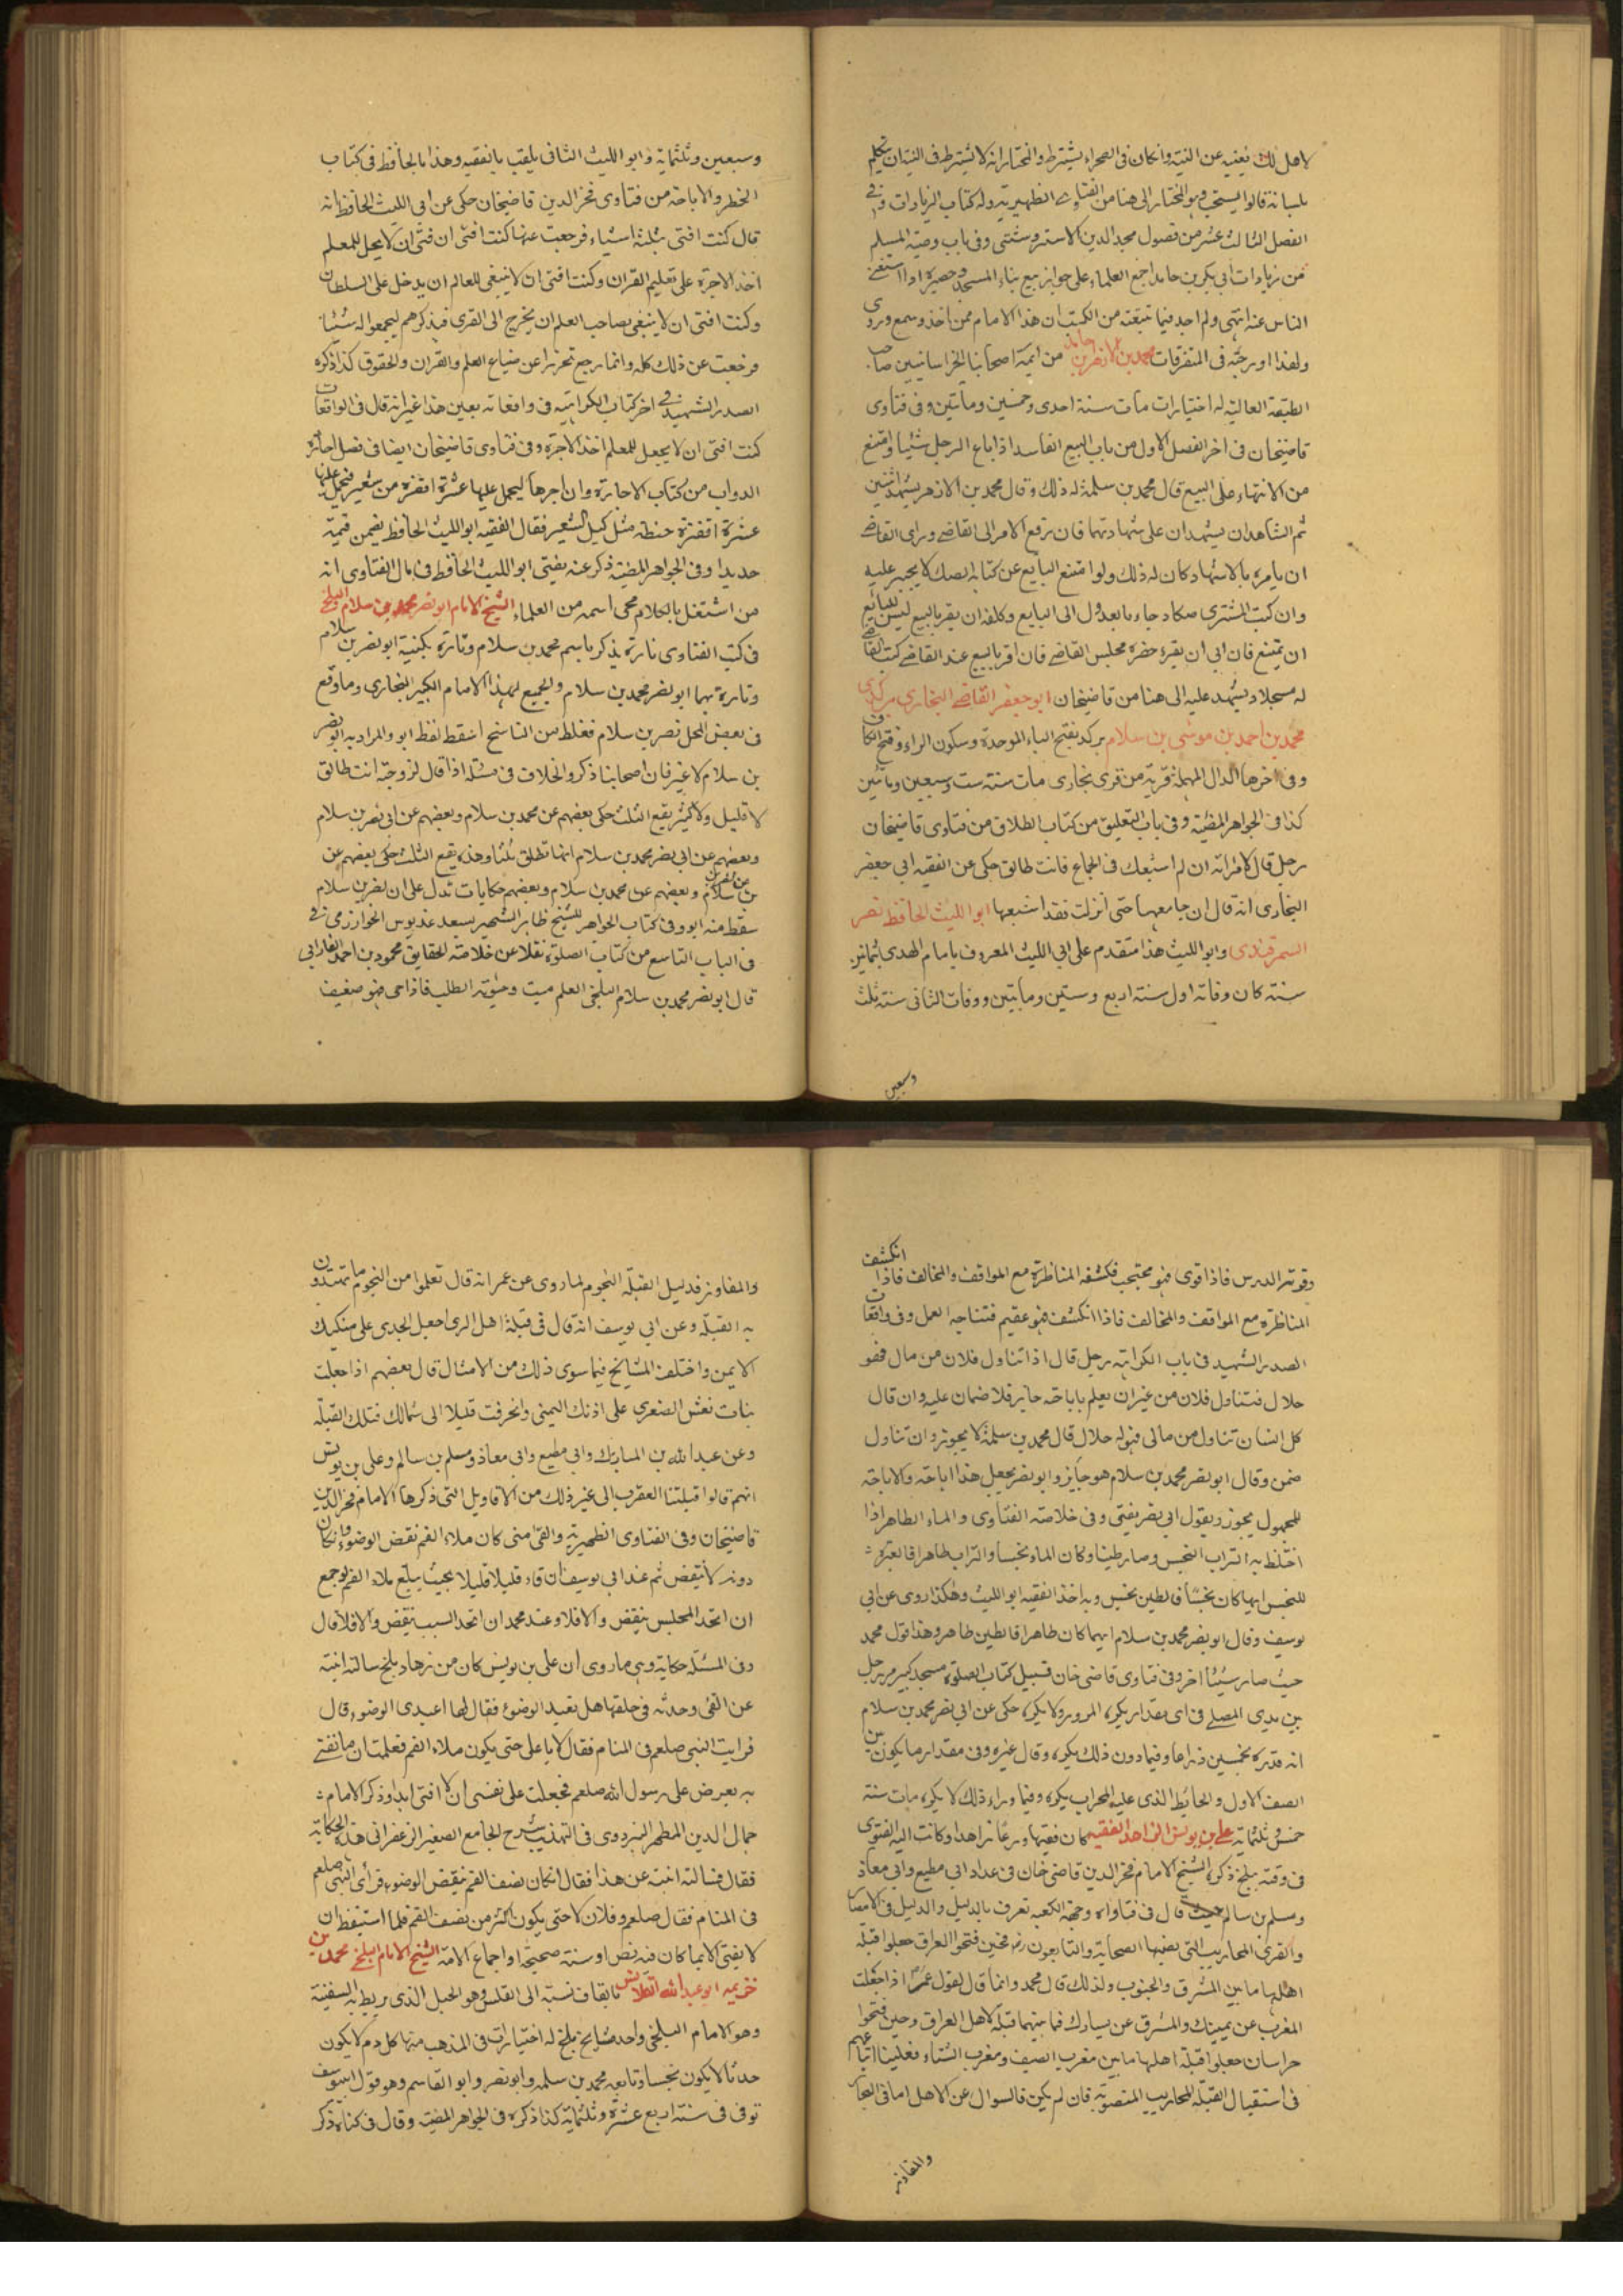 لاهل تلك يغنيه عن النية وان كان فى الصحراء يشترط والمختار انه لا يشترط فى النية ان يتكلم
بلسانه قالوا يستحب وهو المختار الى هنا من الفتاوى الظهيرية وله كتاب الزيادات وفى
الفصل الثالث عشر من فصول مجد الدين الاستروشنى وفى باب وصية المسلم
من زيادات ابى بكر بن حامد اجمع العلماء على جواز بيع بناء المسجد وحصيره اذا استغنى
الناس عنه انتهى ولم اجد فيما تتبعته من الكتب ان هذا الامام ممن اخذ وسمع وروى
ولهذا اوردته فى المتفرقات محمد بن الازهر بن من ايمة اصحابنا الخراسانيين صاحب
الطبقة العالية له اختيارات مات سنة احدى وخمسين ومأتين وفى فتاوى
قاضيخان فى اخر الفصل الاول من باب البيع الفاسد اذا باع الرجل شيئا وامتنع
من الاشهاد على البيع قال محمد بن سلمة له ذلك وقال محمد بن الازهر يشهد اثنين
ثم الشاهدان يشهدان على شهادتهما فان رفع الامر الى القاضى وراى القاضى
ان يامره بالاشهاد كان له ذلك ولو امتنع البايع عن كتابة الصك لا يجبر عليه
وان كتب المشترى صكا وجاء بالعدول الى البايع وكلفه ان يقر بالبيع ليس للبائع
ان يمتنع فان ابى ان يقر حضره مجلس القاضى فان اقر بالبيع عند القاضى كتب القاضى
له سجلا ويشهد عليه الى هنا من قاضيخان ابو جعفر القاضى البخارى بركدى
محمد بن احمد بن موسى بن سلام بركد بفتح الباء الموحدة وسكون الراء وفتح الكاف
وفى اخرها الدال المهملة قرية من قرى بخارى مات سنة ست وسبعين ومائتين
كذا فى الجواهر المضية وفى باب التعليق من كتاب الطلاق من فتاوى قاضيخان
رجل قال لامراته ان لم اشبعك فى الجماع فانت طالق حكى عن الفقيه ابى جعفر
البخارى انه قال ان جامعها حتى انزلت فقد اشبعها ابو الليث الحافظ نصر
السمرقندى وابو الليث هذا متقدم على ابى الليث المعروف بامام الهدى بثمانين
سنة كان وفاته اول سنة اربع وستين ومأتين ووفات الثانى سنة ثلث
وسبعين
وسبعين وثلثماية وابو الليث الثانى يلقب بالفقيه وهذا بالحافظ فى كتاب
الحظر والاباحة من فتاوى فخر الدين قاضيخان حكى عن ابى الليث الحافظ انه
قال كنت افتى بثلثة اشياء فرجعت عنها كنت افتى ان لا يحل للمعلم
اخذ الاجرة على تعليم القران وكنت افتى ان لا ينبغى للعالم ان يدخل على السلطان
وكنت افتى ان لا ينبغى لصاحب العلم ان يخرج الى القرى فيذكرهم ليجمعوا له شيئا
فرجعت عن ذلك كله وانما رجع تحرزا عن ضياع العلم والقران والحقوق كذا ذكره
الصدر الشهيد فى اخر كتاب الكراهية فى واقعاته بعين هذا غير انه قال فى الواقعات
كنت افتى ان لا يجعل للمعلم اخذ الاجرة وفى فتاوى قاضيخان ايضا فى فصل اجارة
الدواب من كتاب الاجارة وان اجرها ليحمل عليها عشرة اقفزة من شعير فحمل عليها
عشرة اقفزة حنطة مثل كيل الشعير فقال الفقيه ابو الليث الحافظ يضمن قيمته
حديدا وفى الجواهر المضية ذكر عنه يفتى ابو الليث الحافظ فى الفتاوى انه
من اشتغل بالكلام محى اسمه من العلماء الشيخ الامام ابو نصر محمد بن سلام البلخى
فى كتب الفتاوى تارة يذكر باسم محمد بن سلام وتارة بكنية ابو نصر بن سلام
وتارة بهما ابو نصر محمد بن سلام والجميع لهذا الامام الكبير البخارى وما وقع
فى بعض المحل نصر بن سلام فغلط من الناسخ اسقط لفظ ابو والمراد به ابو نصر
بن سلام لا غير فان اصحابنا ذكروا الخلاف فى مسئلة اذا قال لزوجته انت طالق
لا قليل ولا كثير يقع الثلث حكى بعضهم عن محمد بن سلام وبعضهم عن ابى نصر بن سلام
وبعضهم عن ابى نصر محمد بن سلام انها تطلق ثلثا وهذه يقع الثلث حكى بعضهم عن
بن سلام وبعضهم عن محمد بن سلام وبعضهم حكايات تدل على ان نصر بن سلام
سقط منه ابو وفى كتاب الجواهر للشيخ طاهر الشهير بسعد غديوس الخوارزمى فى
فى الباب التاسع من كتاب الصلوة نقلا عن خلاصة الحقايق محمود بن احمد الفارابى
قال ابو نصر محمد بن سلام البلخى العلم ميت وحيوته الطلب فاذا حى فهو ضعيف
وقوته الدرس فاذا قوى فهو محتجب فكشفه المناظرة مع الموافق والمخالف فاذا انكشف
المناظرة مع الموافق والمخالف فاذا انكشف فهو عقيم فنتاجه العمل وفى واقعات
الصدر الشهيد فى باب الكراهية رجل قال اذا تناول فلان من مال فهو
حلال فتناول فلان من غير ان يعلم باباحته جاز فلا ضمان عليه وان قال
كل انسان تناول من مالى فهو له حلال قال محمد بن سلمة لا يجوز وان تناول
ضمن وقال ابو نصر محمد بن سلام هو جايز وابو نصر يجعل هذا اباحة والاباحة
للمجهول يجوز وبقول ابى نصر يفتى وفى خلاصة الفتاوى والماء الطاهر اذا
اختلط به التراب النجس وصار طينا وكان الماء نجسا والتراب طاهرا فالعبرة
للنجس ايهما كان نجسا فالطين نجس وبه اخذ الفقيه ابو الليث وهكذا روى عن ابى
يوسف وقال ابو نصر محمد بن سلام ايهما كان طاهرا فالطين طاهر وهذا قول محمد
حيث صار شيئا اخر وفى فتاوى قاضى خان قبيل كتاب الصلوة مسجد كبير مر رجل
بين يدى المصلى فى اى مقدار يكره المرور ولا يكره حكى عن ابى نصر محمد بن سلام
انه قدره بخمسين ذراعا وفيما دون ذلك يكره وقال غيره وفى مقدار ما يكون بين
الصف الاول والحائط الذى عليه المحراب يكره وفيما وراء ذلك لا يكره مات سنة
خمس وثلثماية على بن يونس الزاهد الفقيه كان فقيها ورعا زاهدا وكانت اليه الفتوى
فى وقته ببلخ ذكره الشيخ الامام فخر الدين قاضى خان فى عداد ابى مطيع وابى معاذ
ومسلم بن سالم حيث قال فى فتاواه وجهة الكعبة تعرف بالدليل والدليل فى الامصار
والقرى المحاريب التى نصبها الصحابة والتابعون رضم فحين فتحوا العراق جعلوا قبلة
اهلها ما بين المشرق والجنوب ولذلك قال محمد وانما قال لقول عمر اذا جعلت
المغرب عن يمينك والمشرق عن يسارك فما بينهما قبلة لاهل العراق وحين فتحوا
خراسان جعلوا قبلة اهلها ما بين مغرب الصيف ومغرب الشتاء فعلينا اتباعهم
فى استقبال القبلة المحاريب المنصوبة فان لم يكن فالسوال عن الاهل اما فى البحار
والمفاوز
والمفاوز فدليل القبلة النجوم لما روى عن عمر انه قال تعلموا من النجوم ما تهتدون
به القبلة وعن ابى يوسف انه قال فى قبلة اهل الرى اجعل الجدى على منكبك
الايمن واختلف المشايخ فيما سوى ذلك من الامثال قال بعضهم اذا جعلت
بنات نعش الصغرى على اذنك اليمنى وانحرفت قليلا الى شمالك فتلك القبلة
وعن عبد الله بن المبارك وابى مطيع وابى معاذ ومسلم بن سالم وعلى بن يونس
انهم قالوا قبلتنا العقرب الى غير ذلك من الاقاويل التى ذكرها الامام فخر الدين
قاضيخان وفى الفتاوى الظهيرية والقئ متى كان ملاء الفم نقض الوضوء وان كان
دونه لا ينقض ثم عند ابى يوسف ان قاء قليلا قليلا بحيث يبلغ ملاء الفم لو جمع
ان اتحد المجلس ينقض والا فلا وعند محمد ان اتحد السبب ينقض والا فلا قال
وفى المسئلة حكاية وهى ما روى ان على بن يونس كان من زهاد بلخ سالته ابنته
عن القئ وجدته فى حلقها هل تعيد الوضوء فقال لها اعيدى الوضوء قال
فرايت النبى صلعم فى المنام فقال لا يا على حتى يكون ملاء الفم فعلمت ان ما نفتى
به يعرض على رسول الله صلعم فجعلت على نفسى ان لا افتى ابدا وذكر الامام
جمال الدين المطهر اليزدوى فى التهذيب شرح الجامع الصغير الزعفرانى هذه الحكاية
فقال فسالته ابنته عن هذا فقال ان كان نصف الفم ينقض الوضوء فرأى النبى صلعم
فى المنام فقال صلعم وفلان لا حتى يكون اكثر من نصف الفم فلما استيقظ ان
لا يفتى الا بما كان فيه نص او سنة صحيحة او اجماع الامة الشيخ الامام البلخى محمد بن
خزيمه ابو عبد الله القلاس بالقاف نسبة الى القلس وهو الحبل الذى يربط به السفينة
وهو الامام البلخى واحد مشايخ بلخ له اختيارات فى المذهب منها كل دم لا يكون
حدثا لا يكون نجسا وتابعه محمد بن سلمه وابو نصر وابو القاسم وهو قول ابى يوسف
توفى فى سنة اربع عشرة وثلثماية كذا ذكره فى الجواهر المضية وقال فى كتاب ذكر